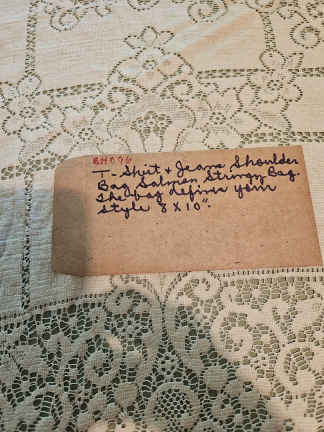 T-Shirt & Jeans Shoulder
Bag Salmon Stringy Bag.
The bag defines your
style 8 X 10".